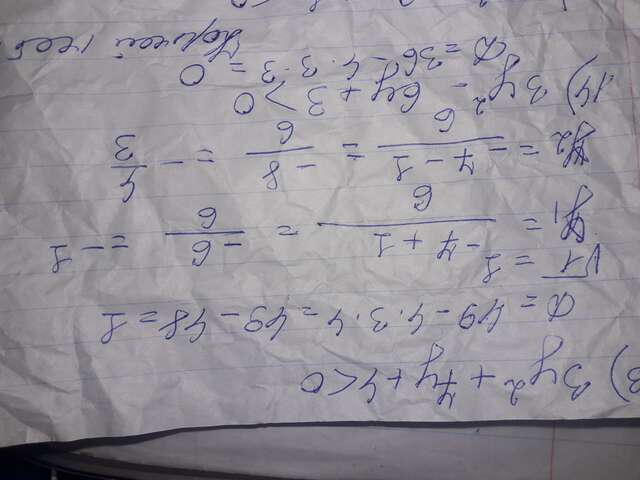 3) 3y² + 7y + 4 < 0
D = 49 - 4·3·4 = 49 - 48 = 1
√1 = 1
y₁ = (-7 + 1)/6 = -6/6 = -1
y₂ = (-7 - 1)/6 = -8/6 = -4/3
14) 3y² - 6y + 3 > 0
D = 36 - 4·3·3 = 0
Корней